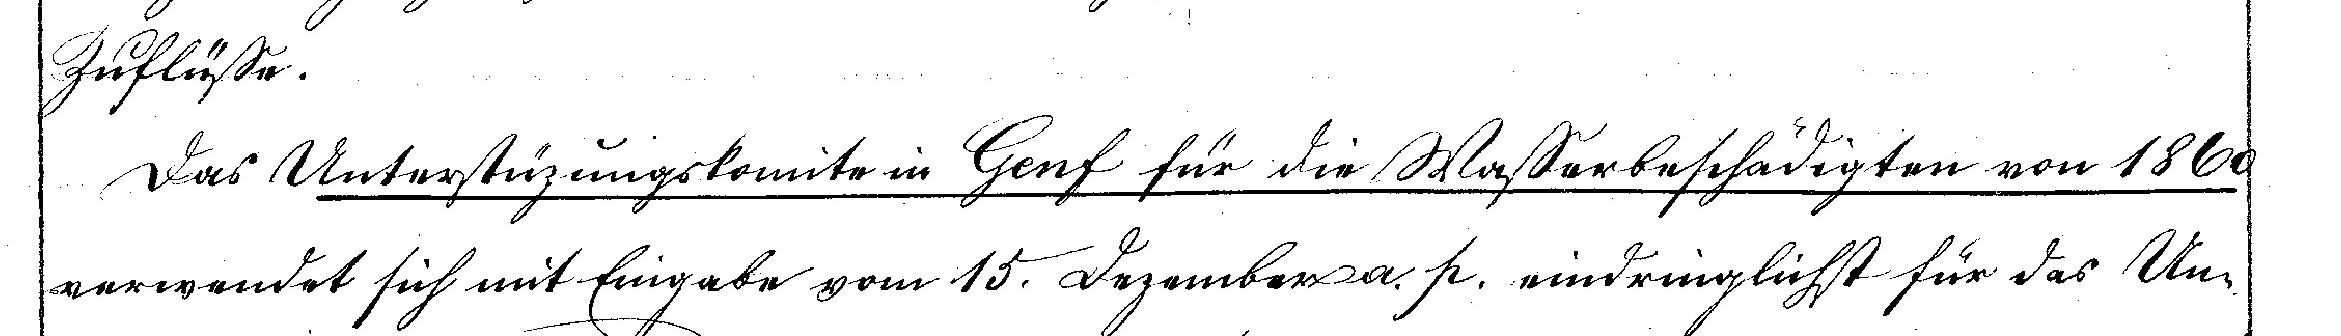 Zuflüsse.
Das Unterstüzungskomite in Genf für die Wasserbeschädigten von 1860
verwendet sich mit Eingabe vom 15. Dezember a. p. eindringlichst für das Un-